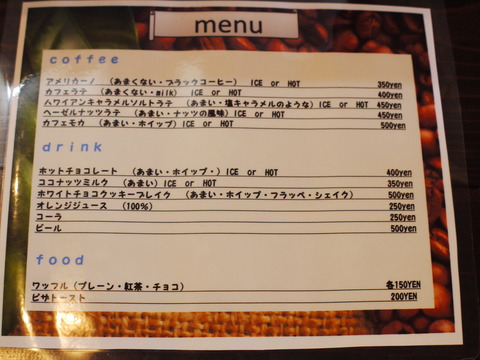 menu
coffee
アメリカーノ (あまくない・ブラックコーヒー) ICE or HOT 350yen
カフェラテ (あまくない・milk) ICE or HOT 400yen
ハワイアンキャラメルソルトラテ (あまい・塩キャラメルのような) ICE or HOT 450yen
ヘーゼルナッツラテ (あまい・ナッツの風味) ICE or HOT 450yen
カフェモカ (あまい・ホイップ) ICE or HOT 500yen
drink
ホットチョコレート (あまい・ホイップ・) ICE or HOT 400yen
ココナッツミルク (あまい) ICE or HOT 350yen
ホワイトチョコクッキーフレイク (あまい・ホイップ・フラッペ・シェイク) 500yen
オレンジジュース (100%) 250yen
コーラ 250yen
ビール 500yen
food
ワッフル (プレーン・紅茶・チョコ) 各150YEN
ピザトースト 200YEN